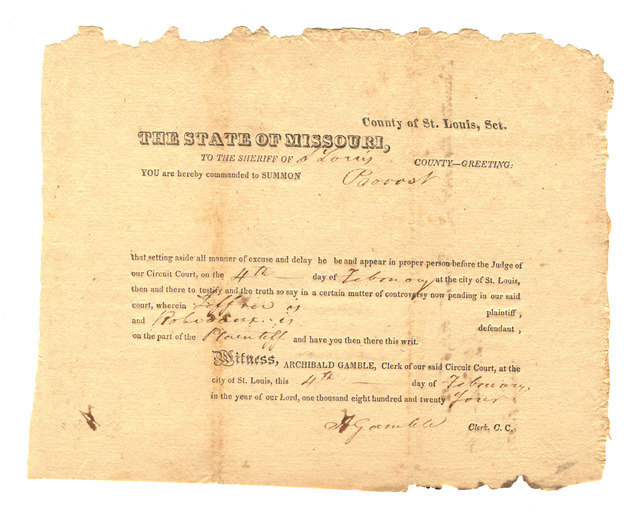 County of St. Louis, Sct.
THE STATE OF MISSOURI,
TO THE SHERIFF OF St Louis COUNTY—GREETING:
YOU are hereby commanded to SUMMON Provost
that setting aside all manner of excuse and delay he be and appear in proper person before the Judge of
our Circuit Court, on the 4th day of February at the city of St. Louis,
then and there to testify and the truth so say in a certain matter of controversy now pending in our said
court, wherein is plaintiff,
and is defendant,
on the part of the Plaintiff and have you then there this writ.
Witness, ARCHIBALD GAMBLE, Clerk of our said Circuit Court, at the
city of St. Louis, this 4th day of February
in the year of our Lord, one thousand eight hundred and twenty four
A Gamble Clerk, C. C.